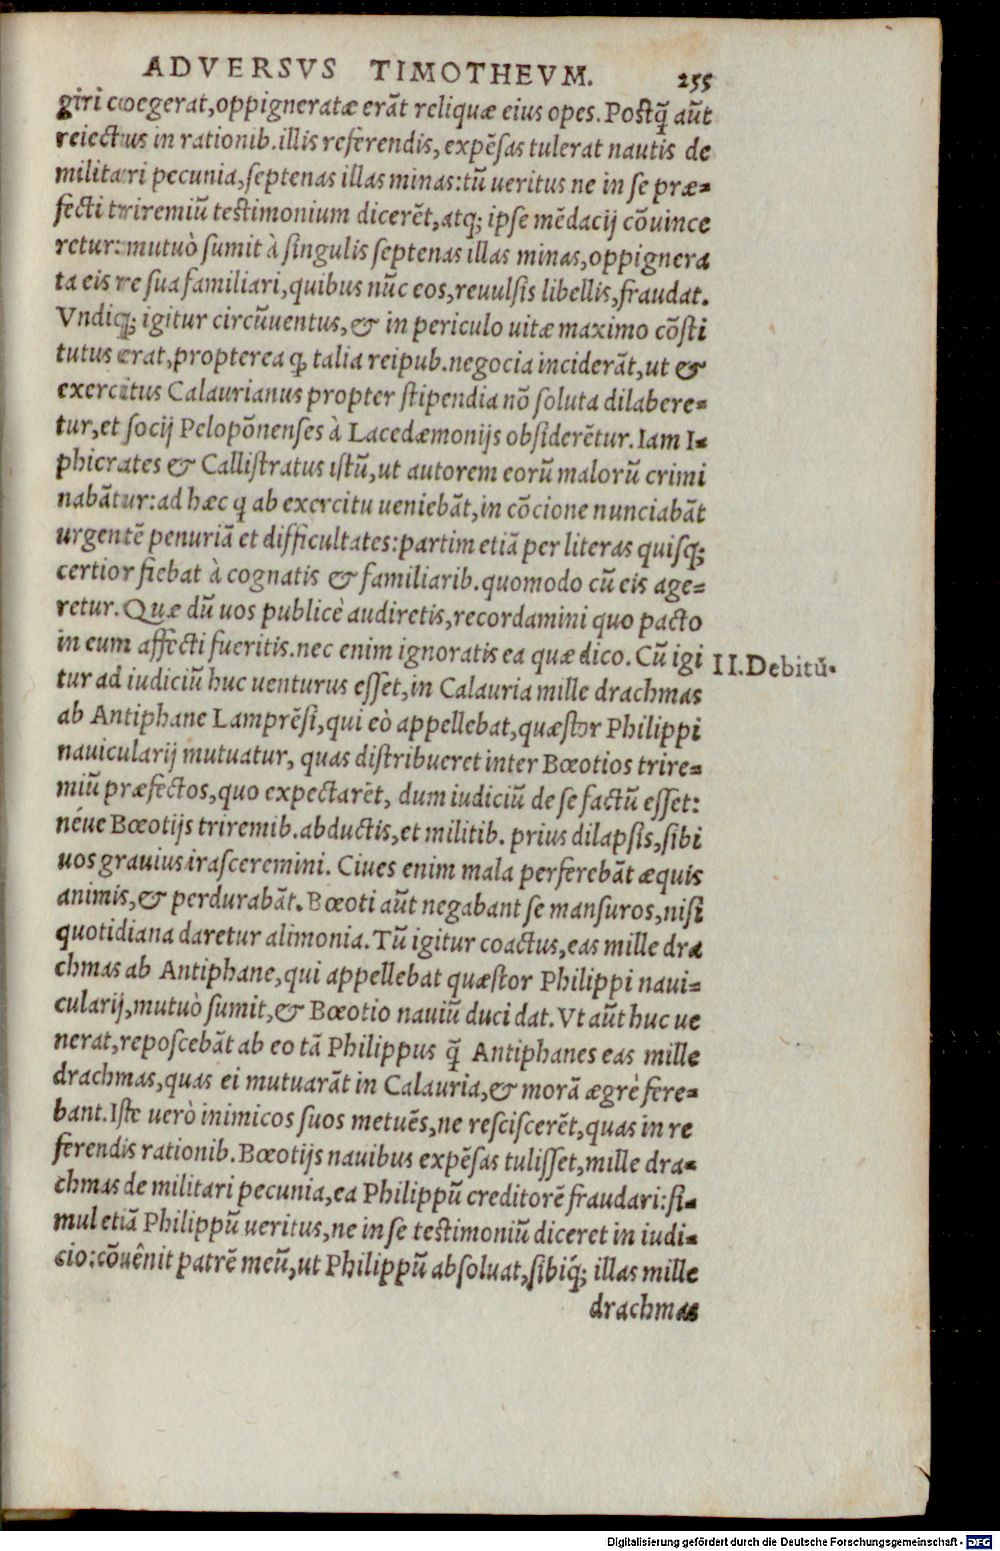 ADVERSVS TIMOTHEVM. 255
giri coegerat, oppigneratæ erāt reliquæ eius opes. Postq̃ aūt
reiectus in rationib. illis referendis, expēsas tulerat nautis de
militari pecunia, septenas illas minas: tū ueritus ne in se præ-
fecti triremiū testimonium dicerēt, atq; ipse mēdacij cōuince
retur: mutuò sumit à singulis septenas illas minas, oppignera
ta eis re sua familiari, quibus nūc eos, reuulsis libellis, fraudat.
Vndiq; igitur circūuentus, & in periculo uitæ maximo cōsti
tutus erat, propterea q̨ talia reipub. negocia inciderāt, ut &
exercitus Calaurianus propter stipendia nō soluta dilabere-
tur, et socij Pelopōnenses à Lacedæmonijs obsiderētur. Iam I-
phicrates & Callistratus istū, ut autorem eorū malorū crimi
nabātur: ad hæc q̨ ab exercitu ueniebāt, in cōcione nunciabāt
urgentē penuriā et difficultates: partim etiā per literas quisq;
certior fiebat à cognatis & familiarib. quomodo cū eis age-
retur. Quæ dū uos publicè audiretis, recordamini quo pacto
in eum affecti fueritis. nec enim ignoratis ea quæ dico. Cū igi
II. Debitū.
tur ad iudiciū huc uenturus esset, in Calauria mille drachmas
ab Antiphane Lamprēsi, qui eò appellebat, quæstor Philippi
nauicularij mutuatur, quas distribueret inter Bœotios trire-
miū præfectos, quo expectarēt, dum iudiciū de se factū esset:
néue Bœotijs triremib. abductis, et militib. prius dilapsis, sibi
uos grauius irasceremini. Ciues enim mala perferebāt æquis
animis, & perdurabāt. Bœoti aūt negabant se mansuros, nisi
quotidiana daretur alimonia. Tū igitur coactus, eas mille dra
chmas ab Antiphane, qui appellebat quæstor Philippi naui-
cularij, mutuò sumit, & Bœotio nauiū duci dat. Vt aūt huc ue
nerat, reposcebāt ab eo tā Philippus q̃ Antiphanes eas mille
drachmas, quas ei mutuarāt in Calauria, & morā ægrè fere-
bant. Iste uerò inimicos suos metuēs, ne resciscerēt, quas in re
ferendis rationib. Bœotijs nauibus expēsas tulisset, mille dra-
chmas de militari pecunia, ea Philippū creditorē fraudari: si-
mul etiā Philippū ueritus, ne in se testimoniū diceret in iudi-
cio: cōuênit patrē meū, ut Philippū absoluat, sibiq́; illas mille
drachmas
Digitalisierung gefördert durch die Deutsche Forschungsgemeinschaft - DFG